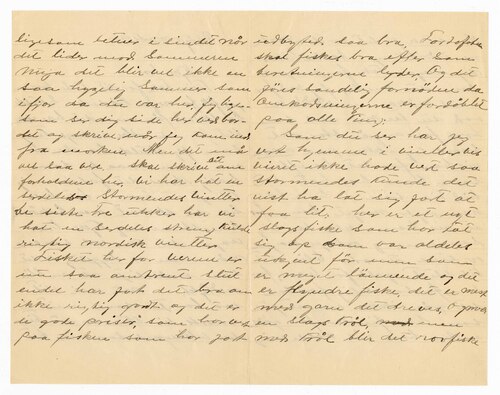 ligesom betuer i sindet når
det lider mod Sommeren
Mya det blir vel ikke en
saa hygelig Sommer som
ifjor da du var her, Jeg lige-
som ser dig side her ved bor-
det og skrive, når jeg kom ind
fra marken Men det må
vel saa være skal skrive om
forholdene her, vi har hat en
serdeles Stormendes Vinter
De siste tre ukker har vi
hat en serdeles streng kulde
rigtig nordisk vinter
Fisket her for været er
nu saa omtrent slut
endel har jort det bra om
ikke rigtig godt og det er
u gode priser, som har vert
paa fisken som har jort
udbyttet saa bra, Lordofoten
skal fiskes bra efter som
beretningerne lyder, Og det
föres sandelig fornöden da
Omkosningerne er fordoblet
paa alle Ting;
Som du ser har jeg
vert hjemme i vinter vis
veiret ikke hade vert saa
stormendes kunde det
vist ha lat sig jort at
faa lit, her er et nyt
slags fiske som har lat
sig op som var aldeles
ukjent för men som
er meget lönnende og det
er Flyndre fiske, det er mest
med garn det drives, Og
en slags trål, men
med trål blir det rovfiske